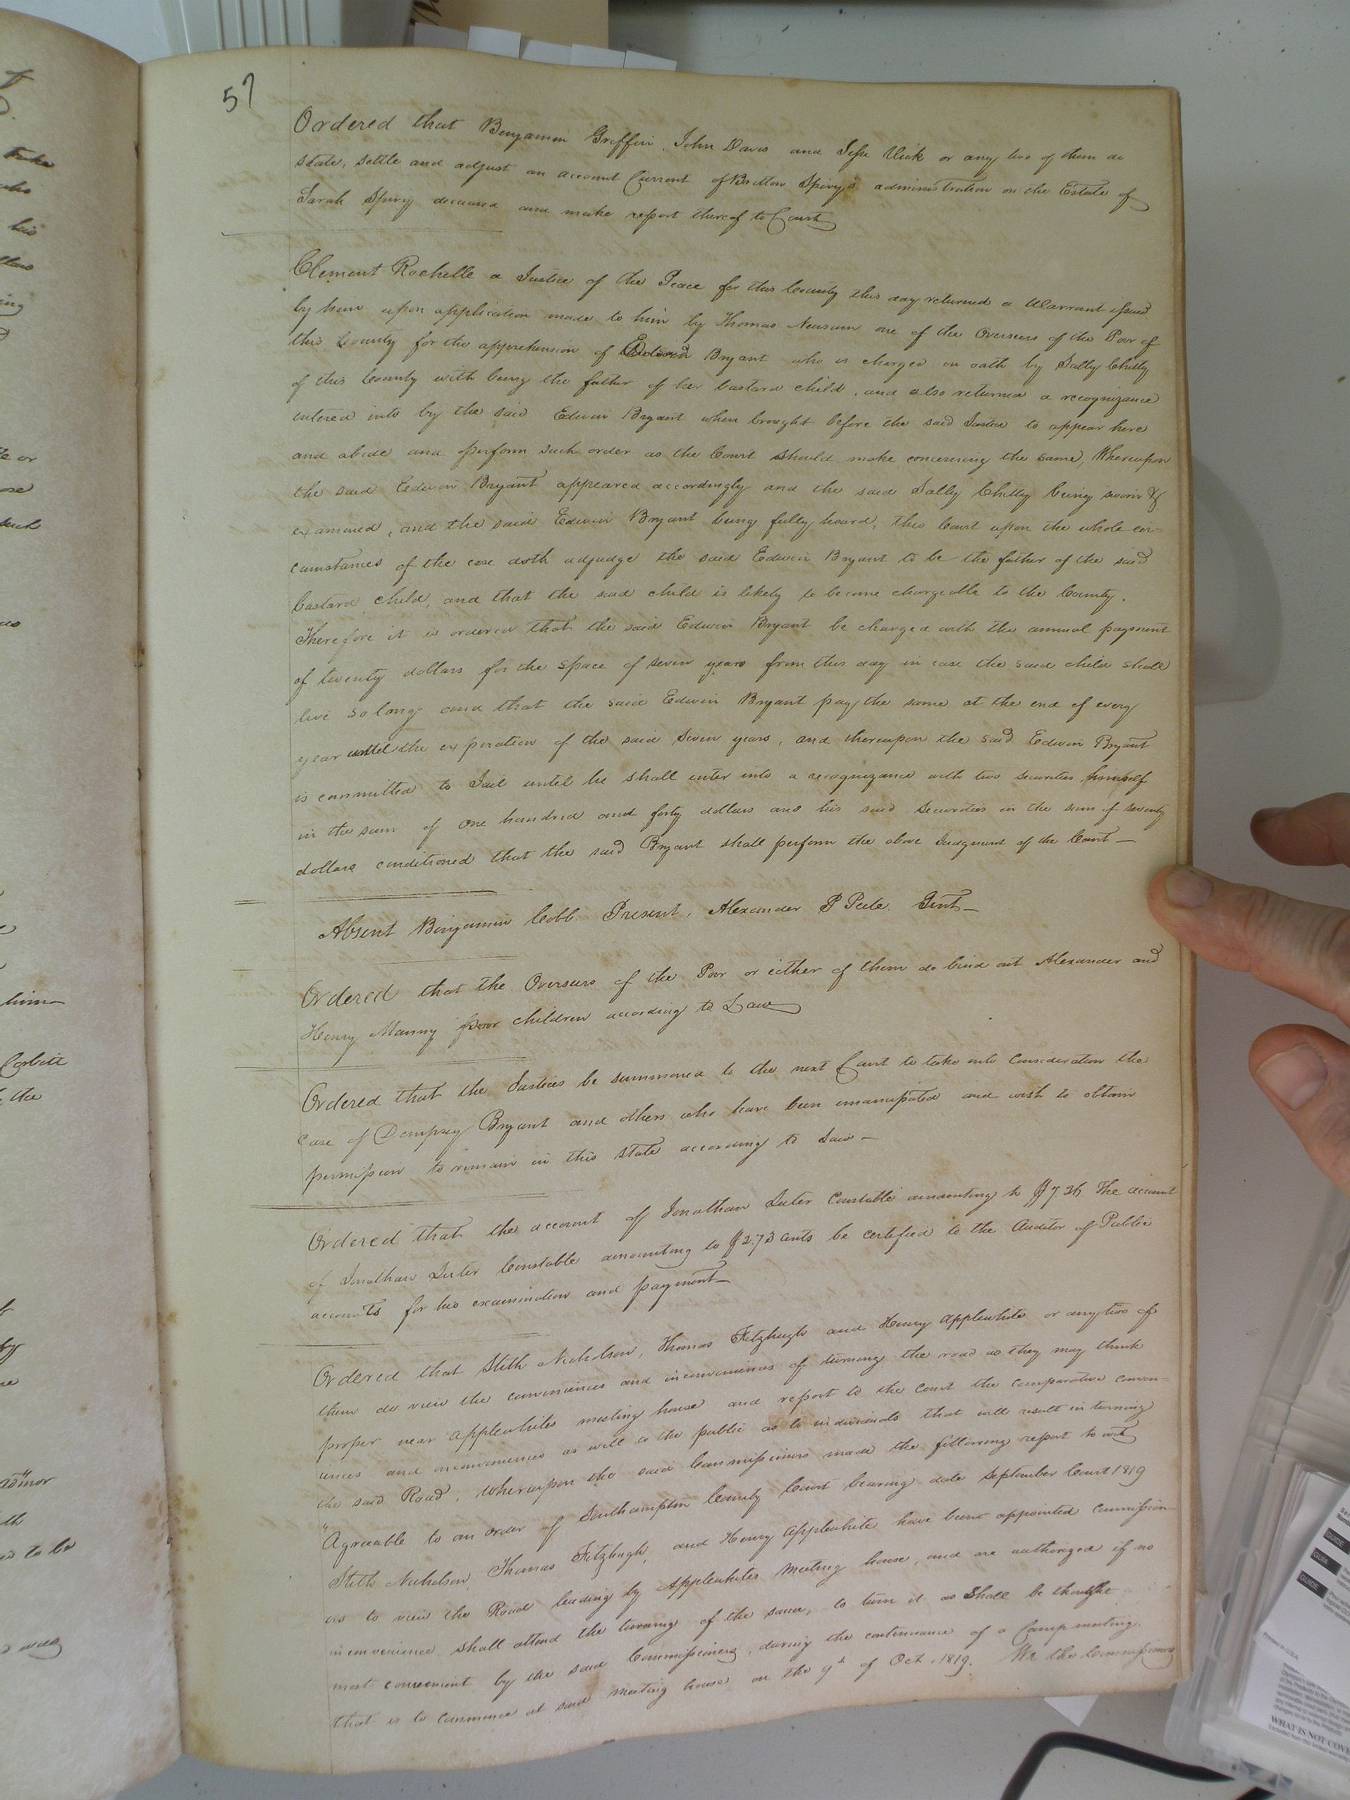 57
Ordered that Benjamin Griffin, John Davis and Jesse Vick or any two of them do
state, settle and adjust an account Current of Britton Spivey's administration on the Estate of
Sarah Spivey deceased and make report thereof to Court
Clement Rochelle a Justice of the Peace for this County this day returned a Warrant issued
by him upon application made to him by Thomas Newsum one of the Overseers of the Poor of
this County for the apprehension of Edwin Bryant who is charged on oath by Sally Chitty
of this County with being the father of her bastard child, and also returned a recognizance
entered into by the said Edwin Bryant when brought before the said Justice to appear here
and abide and perform such order as the Court should make concerning the same, Whereupon
the said Edwin Bryant appeared accordingly and the said Sally Chitty being sworn &
examined, and the said Edwin Bryant being fully heard, this Court upon the whole cir-
cumstances of the case doth adjudge the said Edwin Bryant to be the father of the said
bastard child, and that the said child is likely to become chargeable to the County.
Therefore it is ordered that the said Edwin Bryant be charged with the annual payment
of twenty dollars for the space of seven years from this day in case the said child shall
live so long and that the said Edwin Bryant pay the same at the end of every
year until the expiration of the said seven years, and thereupon the said Edwin Bryant
is committed to Jail until he shall enter into a recognizance with two securities himself
in the sum of One hundred and forty dollars and his said Securities in the sum of seventy
dollars conditioned that the said Bryant shall perform the above Judgment of the Court—
Absent Benjamin Cobb Present, Alexander P Peete. Gent—
Ordered that the Overseers of the Poor or either of them do bind out Alexander and
Henry Manny poor children according to Law
Ordered that the Justices be summoned to the next Court to take into Consideration the
case of Dempsey Bryant and others who have been emancipated and wish to obtain
permission to remain in this State according to Law—
Ordered that the account of Jonathan Luter Constable amounting to $7.36 The account
of Jonathan Luter Constable amounting to $2.73 cents be certified to the Auditor of Public
accounts for his examination and payment—
Ordered that Stith Nicholson, Thomas Fitzhugh and Henry Applewhite or any two of
them do view the conveniences and inconveniences of turning the road as they may think
proper near Applewhites meeting house and report to the Court the comparative conven-
iences and inconveniences as well to the public as to individuals that will result in turning
the said Road, whereupon the said Commissioners made the following report to wit
"Agreeable to an order of Southampton County Court bearing date September Court 1819
Stith Nicholson, Thomas Fitzhugh, and Henry Applewhite have been appointed commission-
ers to view the Road leading by Applewhites Meeting house, and are authorized if no
inconvenience shall attend the turning of the same, to turn it as shall be thought
most convenient by the said Commissioners, during the continuance of a Camp meeting.
that is to commence at said meeting house on the 7th of Oct. 1819. We the Commissioners